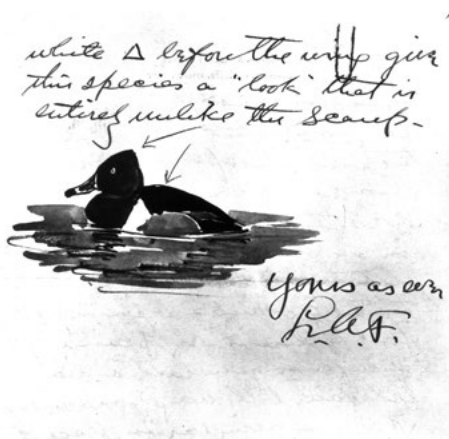 white Δ before the wing give
this species a "look" that is
entirely unlike the Scaups-
Yours as ever
L.A.F.